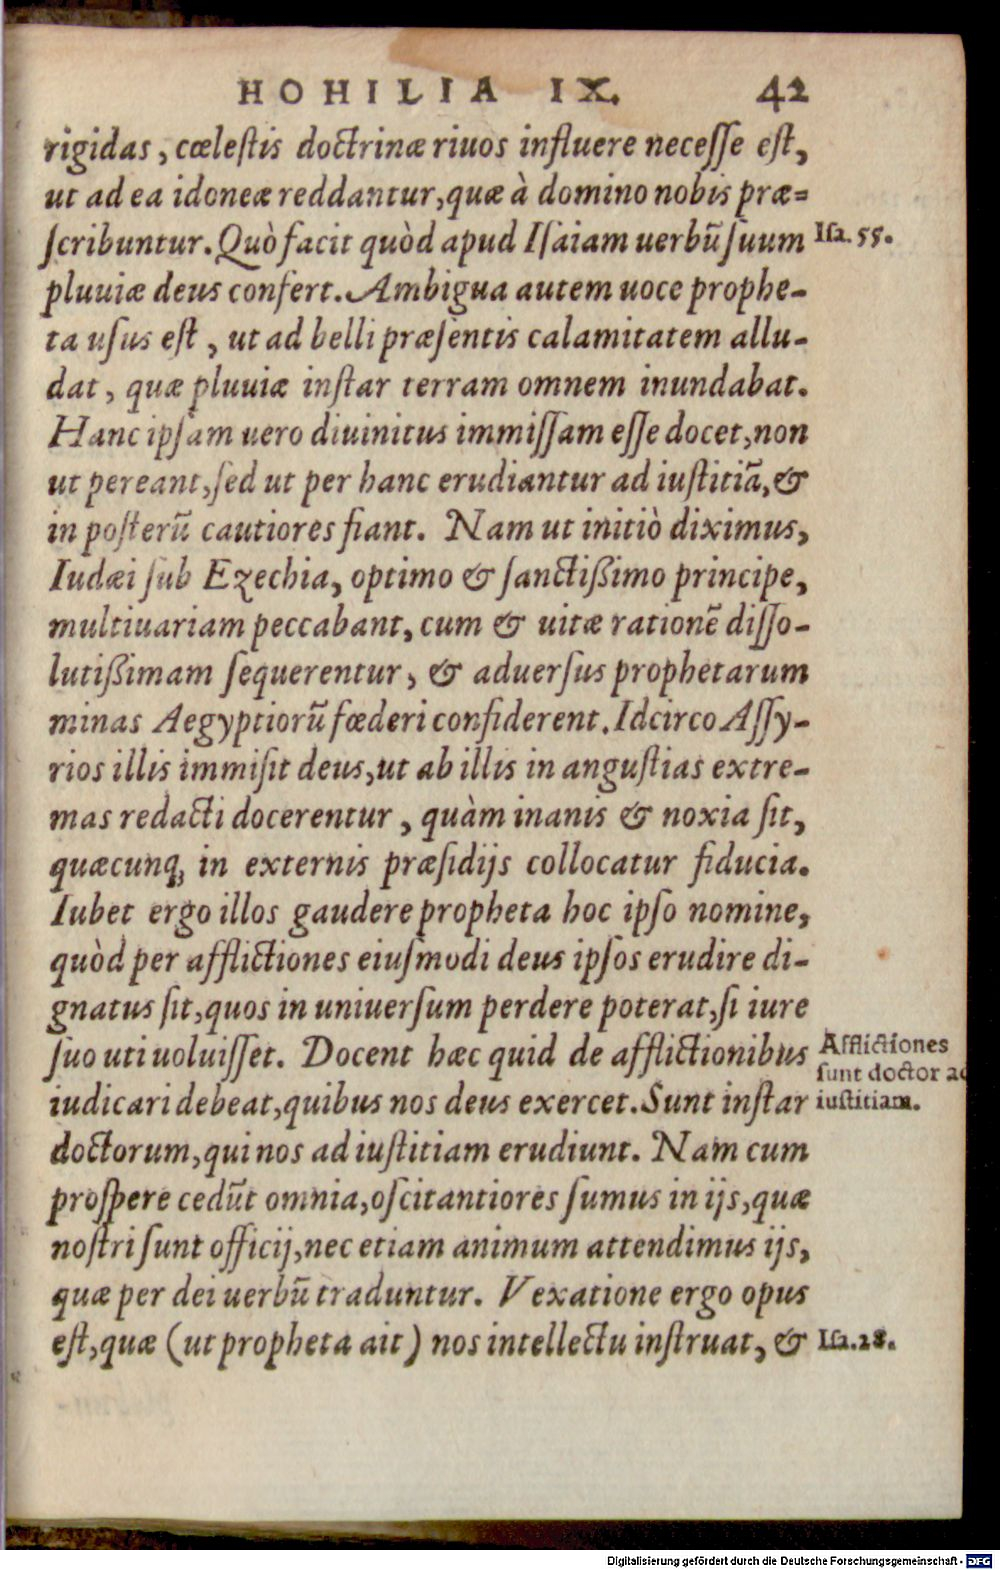 HOHILIA IX. 42
rigidas, cœlestis doctrinæ riuos influere necesse est,
ut ad ea idoneæ reddantur, quæ à domino nobis præ=
scribuntur. Quò facit quòd apud Isaiam uerbũ suum
Isa. 55.
pluuiæ deus confert. Ambigua autem uoce prophe-
ta usus est, ut ad belli præsentis calamitatem allu-
dat, quæ pluuiæ instar terram omnem inundabat.
Hanc ipsam uero diuinitus immissam esse docet, non
ut pereant, sed ut per hanc erudiantur ad iustitiã, &
in posterũ cautiores fiant. Nam ut initiò diximus,
Iudæi sub Ezechia, optimo & sanctißimo principe,
multiuariam peccabant, cum & uitæ rationẽ disso-
lutißimam sequerentur, & aduersus prophetarum
minas Aegyptiorũ fœderi confiderent. Idcirco Assy-
rios illis immisit deus, ut ab illis in angustias extre-
mas redacti docerentur, quàm inanis & noxia sit,
quæcunq; in externis præsidijs collocatur fiducia.
Iubet ergo illos gaudere propheta hoc ipso nomine,
quòd per afflictiones eiusmodi deus ipsos erudire di-
gnatus sit, quos in uniuersum perdere poterat, si iure
suo uti uoluisset. Docent hæc quid de afflictionibus
Afflictiones
sunt doctor ad
iustitiam.
iudicari debeat, quibus nos deus exercet. Sunt instar
doctorum, qui nos ad iustitiam erudiunt. Nam cum
prospere cedũt omnia, oscitantiores sumus in ijs, quæ
nostri sunt officij, nec etiam animum attendimus ijs,
quæ per dei uerbũ traduntur. Vexatione ergo opus
est, quæ (ut propheta ait) nos intellectu instruat, &
Isa. 28.
Digitalisierung gefördert durch die Deutsche Forschungsgemeinschaft - DFG